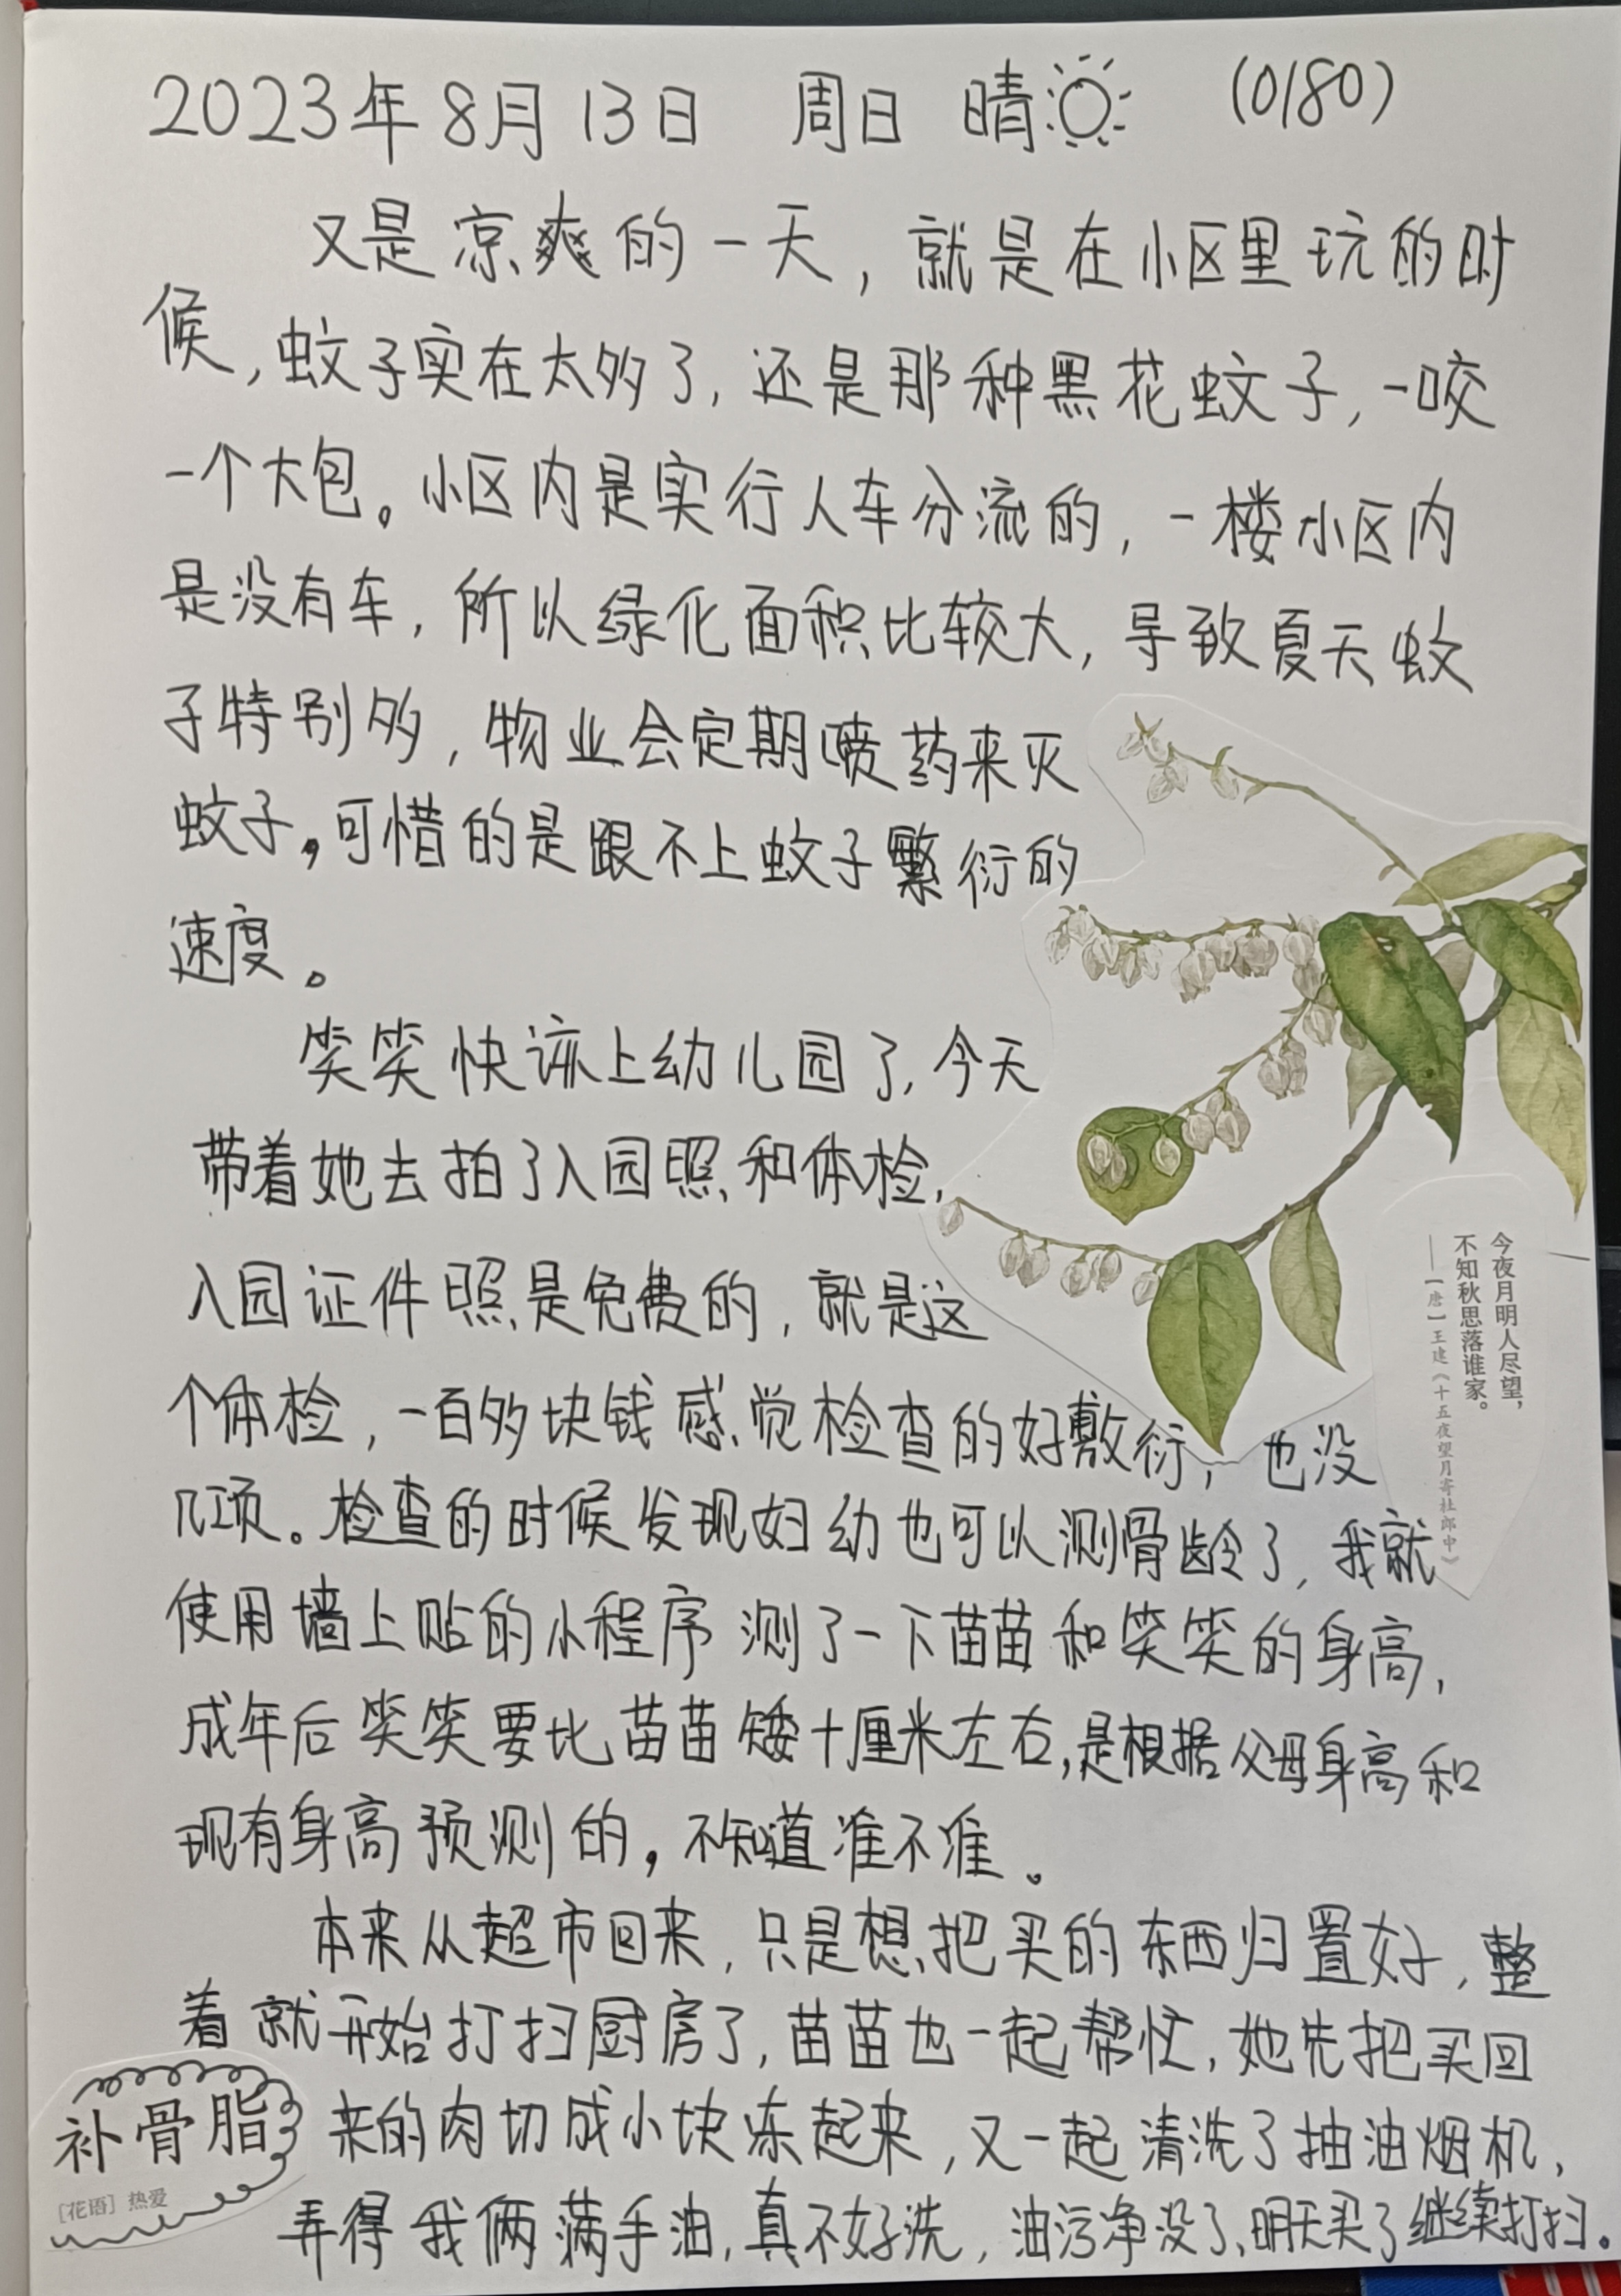 2023年8月13日 周日 晴 (0/80)
又是凉爽的一天，就是在小区里玩的时
候，蚊子实在太多了，还是那种黑花蚊子，一咬
一个大包。小区内是实行人车分流的，一楼小区内
是没有车，所以绿化面积比较大，导致夏天蚊
子特别多，物业会定期喷药来灭
蚊子，可惜的是跟不上蚊子繁衍的
速度。
笑笑快该上幼儿园了，今天
带着她去拍了入园照和体检，
入园证件照是免费的，就是这
个体检，一百多块钱感觉检查的好敷衍，也没
几项。检查的时候发现妇幼也可以测骨龄了，我就
使用墙上贴的小程序测了一下苗苗和笑笑的身高，
成年后笑笑要比苗苗矮十厘米左右，是根据父母身高和
现有身高预测的，不知道准不准。
本来从超市回来，只是想把买的东西归置好，整
着就开始打扫厨房了，苗苗也一起帮忙，她先把买回
来的肉切成小块冻起来，又一起清洗了抽油烟机，
弄得我俩满手油，真不好洗，油污净没了，明天买了继续打扫。
今夜月明人尽望，
不知秋思落谁家。
——［唐］王建《十五夜望月寄杜郎中》
补骨脂
［花语］热爱